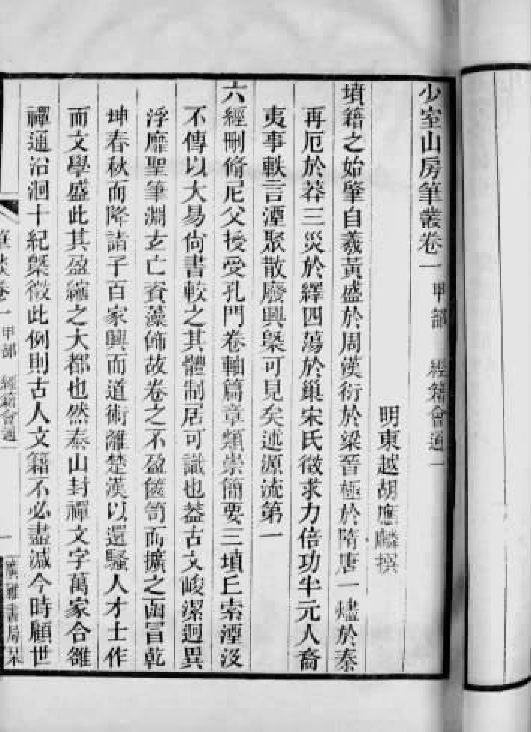 少室山房筆叢卷一 甲部 經籍會通一
明東越胡應麟撰
墳籍之始肇自羲黃盛於周漢衍於梁晉極於隋唐一燼於秦
再厄於莽三災於繹四蕩於巢宋氏徵求力倍功半元人裔
夷事軼言湮聚散廢興槩可見矣述源流第一
六經刪脩尼父授受孔門卷軸篇章類崇簡要三墳丘索湮沒
不傳以大易尚書較之其體制居可識也葢古文峻潔迥異
浮靡聖筆淵玄亡資藻飾故卷之不盈篋笥而擴之凾冒乾
坤春秋而降諸子百家興而道術離楚漢以還騷人才士作
而文學盛此其盈縮之大都也然泰山封禪文字萬家合雒
禪通沿洄十紀槩徵此例則古人文籍不必盡減今時顧世
筆叢卷一 甲部 經籍會通一
一
廣雅書局栞